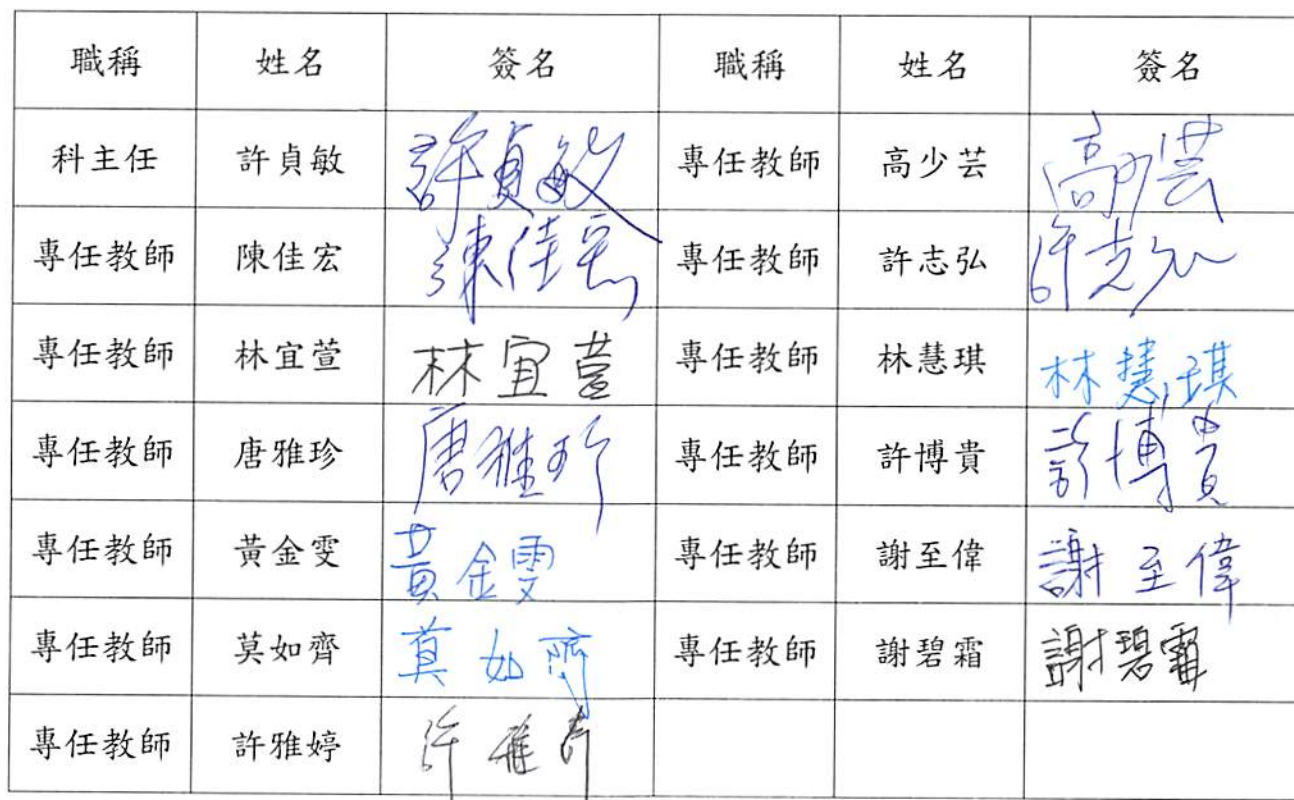 職稱 姓名 簽名 職稱 姓名 簽名
科主任 許貞敏 許貞敏 專任教師 高少芸 高少芸
專任教師 陳佳宏 陳佳宏 專任教師 許志弘 許志弘
專任教師 林宜萱 林宜萱 專任教師 林慧琪 林慧琪
專任教師 唐雅珍 唐雅珍 專任教師 許博貴 許博貴
專任教師 黃金雯 黃金雯 專任教師 謝至偉 謝至偉
專任教師 莫如齊 莫如齊 專任教師 謝碧霜 謝碧霜
專任教師 許雅婷 許雅婷